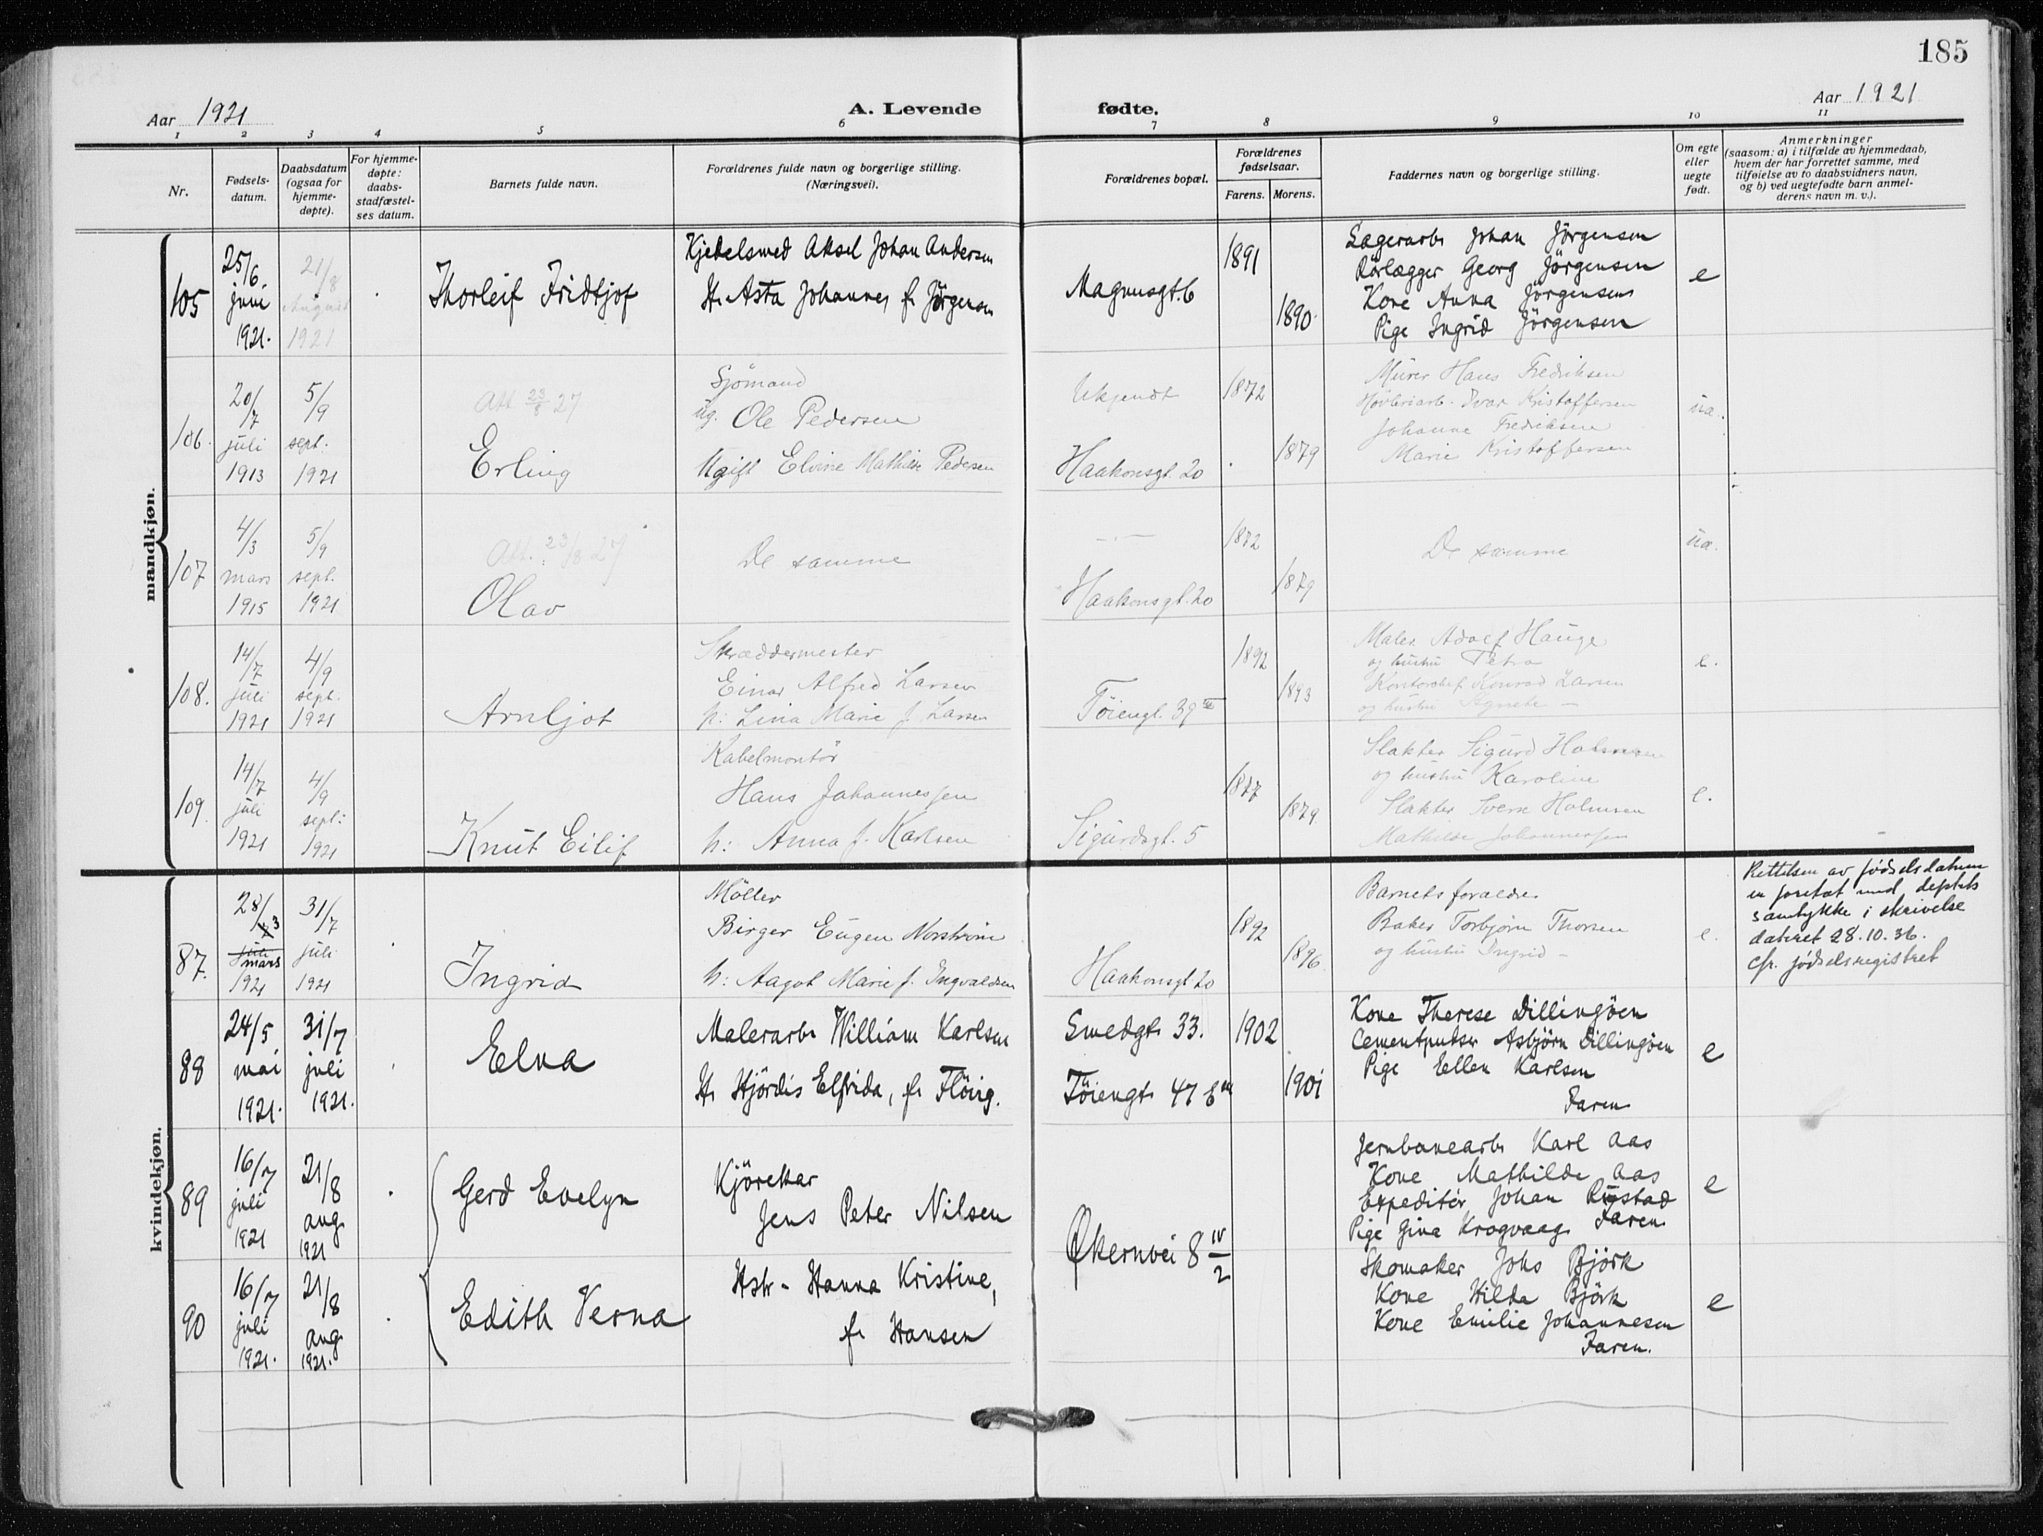 185
Aar 1921
A. Levende fødte.
Aar 1921
1 2 3 4 5 6 7 8 9 10 11
Nr.
Fødsels-
datum.
Daabsdatum
(ogsaa for
hjemme-
døpte).
For hjemme-
døpte:
daabs-
stadfæstel-
ses datum.
Barnets fulde navn.
Forældrenes fulde navn og borgerlige stilling.
(Næringsvei).
Forældrenes bopæl.
Forældrenes
fødselsaar.
Farens. Morens.
Faddernes navn og borgerlige stilling.
Om egte
eller
uegte
født.
Anmerkninger
(saasom: a) i tilfælde av hjemmedaab,
hvem der har forrettet samme, med
tilføielse av to daabsvidners navn,
og b) ved uegtefødte barn anmel-
derens navn m. v.).
mandkjøn.
105
25/6.
juni
1921.
21/8
August
1921
Thorleif Fridtjof
Kjedelsmed Aksel Johan Andersen
H. Asta Johannes f. Jørgensen
Magnusgt. 6
1891
1890.
Lagerarb. Johan Jörgensen
Rörlægger Georg Jörgensen
Kone Anna Jörgensen
Pige Ingrid Jörgensen
e
106.
20/7
juli
1913
5/9
sept.
1921
Att 23/8 27
Erling
Sjömand
ug. Ole Pedersen
Ugift Elvine Mathilde Pedersen
Ukjendt
Haakonsgt. 20
1872
1879
Murer Hans Fredriksen
Høvleriarb. Ivar Kristoffersen
Johanne Fredriksen
Marie Kristoffersen
ua.
107
4/3
mars
1915
5/9
sept.
1921
Att. 23/8 27
Olav
De samme
— " —
Haakonsgt. 20
1872
1879
De samme
ua.
108.
14/7
juli
1921
4/9
sept.
1921
Arnljot
Skræddermester
Einar Alfred Larsen
h: Lina Marie f. Larsen
Töiengt. 39 III
1892
1893
Maler Adolf Hauge
og hustru Petra
Kontorchef Konrad Larsen
og hustru Agnete —
e.
109.
14/7
juli
1921
4/9
sept:
1921
Knut Eilif
Kabelmontör
Hans Johannessen
h: Anna f. Karlsen
Sigurdsgt. 5
1877
1879
Slakter Sigurd Holmsen
og hustru Karoline
Slakter Sverre Holmsen
Mathilde Johannessen
e.
kvindekjøn.
87.
28/3
juli
mars
1921
31/7
juli
1921
Ingrid
Møller
Birger Eugen Norström
h: Aagot Marie f. Ingvaldsen
Haakonsgt 20
1892
1896
Barnets forældre
Baker Torbjörn Thorsen
og hustru Ingrid —
e.
Rettelsen av fødselsdatum
er foretat med depts
samtykke i skrivelse
dateret 28.10.36.
cfr. fødselsregistret
88
24/5
mai
1921.
31/7
juli
1921.
Elna
Malerarb. William Karlsen
H. Hjördis Elfrida, f. Flöig.
Smedgt. 33.
Töiengt. 47
1902
1901
Kone Therese Dillingöen
Cementpudser Asbjörn Dillingöen
Pige Ellen Karlsen
Faren
e
89
16/7
juli
1921
21/8
aug.
1921
Gerd Evelyn
Kjörekar
Jens Peter Nilsen
Hstr. Hanna Kristine,
f. Hansen
Økernvei 8 IV/2
Jernbanearb. Karl Aas
Kone Mathilde Aas
Expeditør Johan Rustad
Pige Gina Krogvaag Faren
e
90
16/7
juli
1921.
21/8
aug.
1921.
Edith Verna
Skomaker Johs Björk
Kone Hilda Björk
Kone Emilie Johannesen
Faren.
e